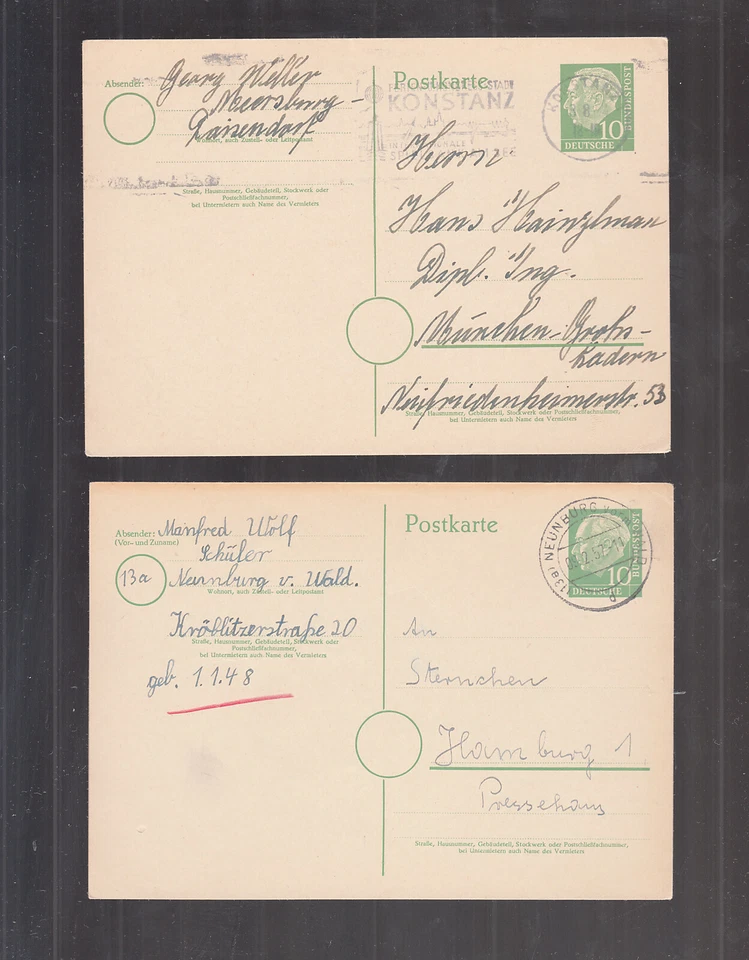 Absender:
Georg Weller
Meersburg -
Daisendorf
Wohnort, auch Zustell- oder Leitpostamt
Straße, Hausnummer, Gebäudeteil, Stockwerk oder
Postschließfachnummer,
bei Untermietern auch Name des Vermieters
Postkarte
KONSTANZ
KONSTANZ
10
DEUTSCHE
BUNDESPOST
Herrn
Hans Hainzlman
Dipl. Ing.
München-Grohs-
hadern
Neufriedenheimerstr. 53
Straße, Hausnummer, Gebäudeteil, Stockwerk oder Postschließfachnummer,
bei Untermietern auch Name des Vermieters
Absender: Manfred Wolf
(Vor- und Zuname)
Schüler
13a Neunburg v. Wald.
Wohnort, auch Zustell- oder Leitpostamt
Kröblitzerstraße 20
Straße, Hausnummer, Gebäudeteil, Stockwerk oder
Postschließfachnummer,
bei Untermietern auch Name des Vermieters
geb. 1.1.48
Postkarte
(13a) NEUNBURG
10
DEUTSCHE
BUNDESPOST
An
Sternchen
Hamburg 1
Pressehaus
Straße, Hausnummer, Gebäudeteil, Stockwerk oder Postschließfachnummer,
bei Untermietern auch Name des Vermieters